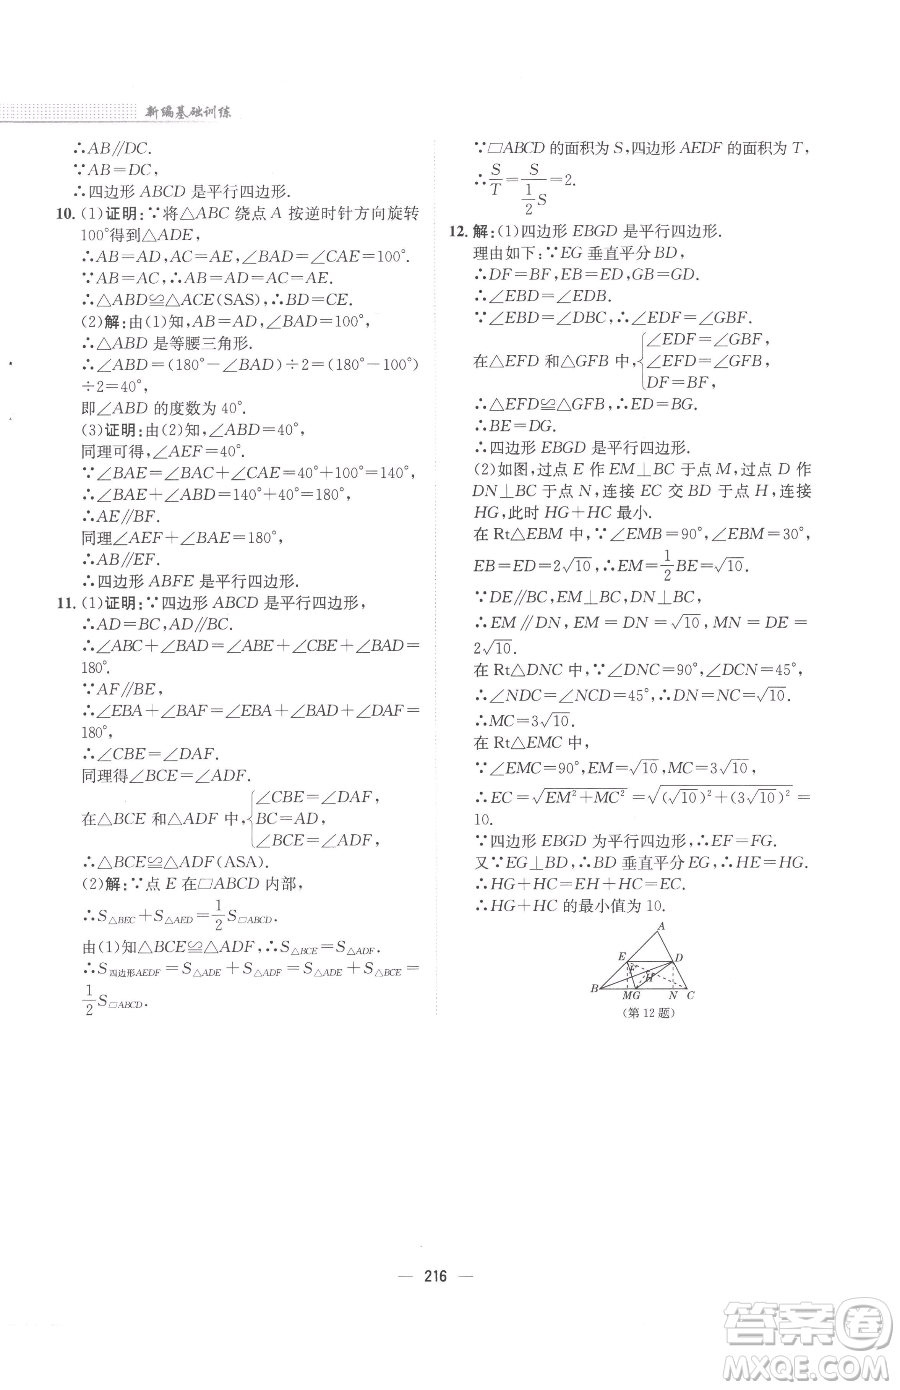 新编基础训练
∴AB∥DC.
∵AB=DC,
∴四边形 ABCD 是平行四边形.
10. (1)证明:∵将△ABC 绕点 A 按逆时针方向旋转
100°得到△ADE,
∴AB=AD,AC=AE,∠BAD=∠CAE=100°.
∵AB=AC,∴AB=AC=AD=AE.
∴△ABD≌△ACE(SAS),∴BD=CE.
(2)解:由(1)知,AB=AD,∠BAD=100°,
∴△ABD 是等腰三角形.
∴∠ABD=(180°-∠BAD)÷2=(180°-100°)
÷2=40°,
即∠ABD 的度数为 40°.
(3)证明:由(2)知,∠ABD=40°,
同理可得,∠AEF=40°.
∵∠BAE=∠BAC+∠CAE=40°+100°=140°,
∴∠BAE+∠ABD=140°+40°=180°,
∴AE∥BF.
同理∠AEF+∠BAE=180°,
∴AB∥EF.
∴四边形 ABFE 是平行四边形.
11. (1)证明:∵四边形 ABCD 是平行四边形,
∴AD=BC,AD∥BC.
∴∠ABC+∠BAD=∠ABE+∠CBE+∠BAD=
180°.
∵AF∥BE,
∴∠EBA+∠BAF=∠EBA+∠BAD+∠DAF=
180°.
∴∠CBE=∠DAF.
同理得∠BCE=∠ADF.
在△BCE 和△ADF 中,{∠CBE=∠DAF,
BC=AD,
∠BCE=∠ADF,
∴△BCE≌△ADF(ASA).
(2)解:∵点 E 在▱ABCD 内部,
∴S△BEC+S△AED=1/2 S▱ABCD.
由(1)知△BCE≌△ADF,∴S△BCE=S△ADF.
∴S四边形AEDF=S△ADE+S△ADF=S△ADE+S△BCE=
1/2 S▱ABCD.
∵▱ABCD 的面积为 S,四边形 AEDF 的面积为 T,
∴S/T=S/(1/2 S)=2.
12. 解:(1)四边形 EBGD 是平行四边形.
理由如下:∵EG 垂直平分 BD,
∴DF=BF,EB=ED,GB=GD.
∴∠EBD=∠EDB.
∵∠EBD=∠DBC,∴∠EDF=∠GBF.
在△EFD 和△GFB 中,{∠EDF=∠GBF,
∠EFD=∠GFB,
DF=BF,
∴△EFD≌△GFB,∴ED=BG.
∴BE=DG.
∴四边形 EBGD 是平行四边形.
(2)如图,过点 E 作 EM⊥BC 于点 M,过点 D 作
DN⊥BC 于点 N,连接 EC 交 BD 于点 H,连接
HG,此时 HG+HC 最小.
在 Rt△EBM 中,∵∠EMB=90°,∠EBM=30°,
EB=ED=2√10,∴EM=1/2 BE=√10.
∵DE∥BC,EM⊥BC,DN⊥BC,
∴EM∥DN,EM=DN=√10,MN=DE=
2√10.
在 Rt△DNC 中,∵∠DNC=90°,∠DCN=45°,
∴∠NDC=∠NCD=45°,∴DN=NC=√10.
∴MC=3√10.
在 Rt△EMC 中,
∵∠EMC=90°,EM=√10,MC=3√10,
∴EC=√(EM²+MC²)=√((√10)²+(3√10)²)=
10.
∵四边形 EBGD 为平行四边形,∴EF=FG.
又∵EG⊥BD,∴BD 垂直平分 EG,∴HE=HG.
∴HG+HC=EH+HC=EC.
∴HG+HC 的最小值为 10.
A
E D
F
H
B MG N C
(第 12 题)
— 216 —
答案圈
MXQE.COM